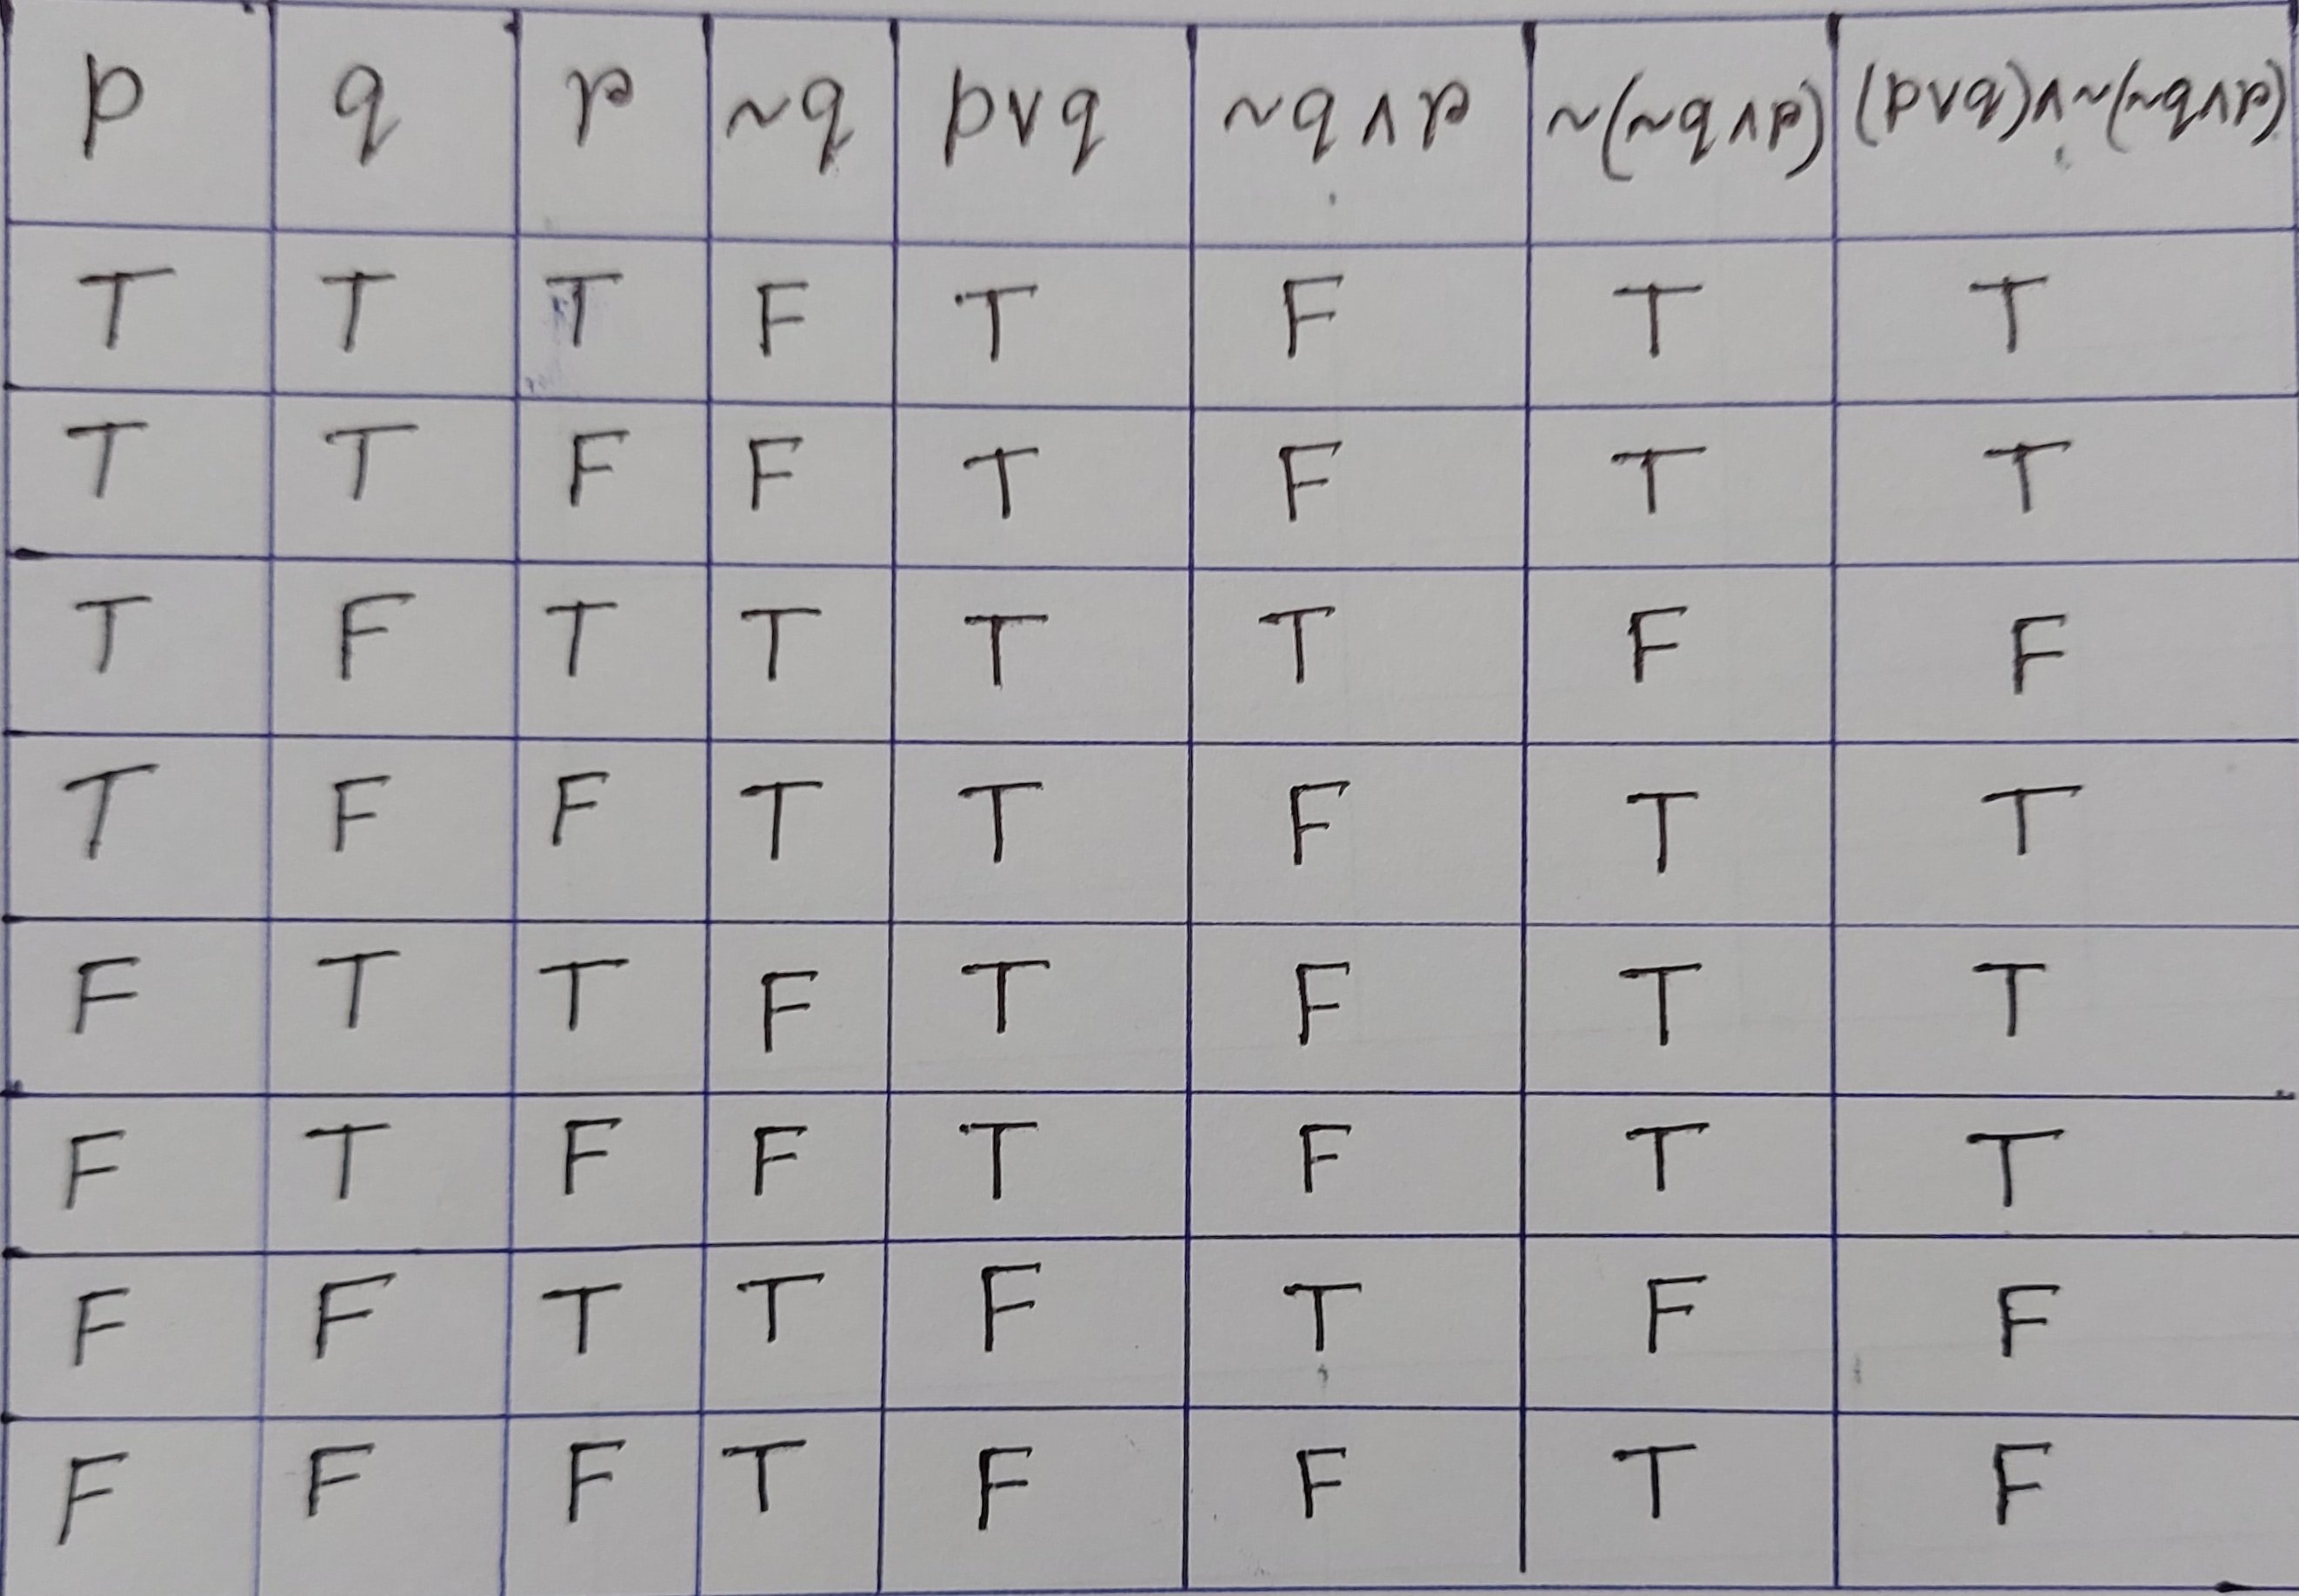 p q r ~q p∨q ~q∧r ~(~q∧r) (p∨q)∧~(~q∧r)
T T T F T F T T
T T F F T F T T
T F T T T T F F
T F F T T F T T
F T T F T F T T
F T F F T F T T
F F T T F T F F
F F F T F F T F